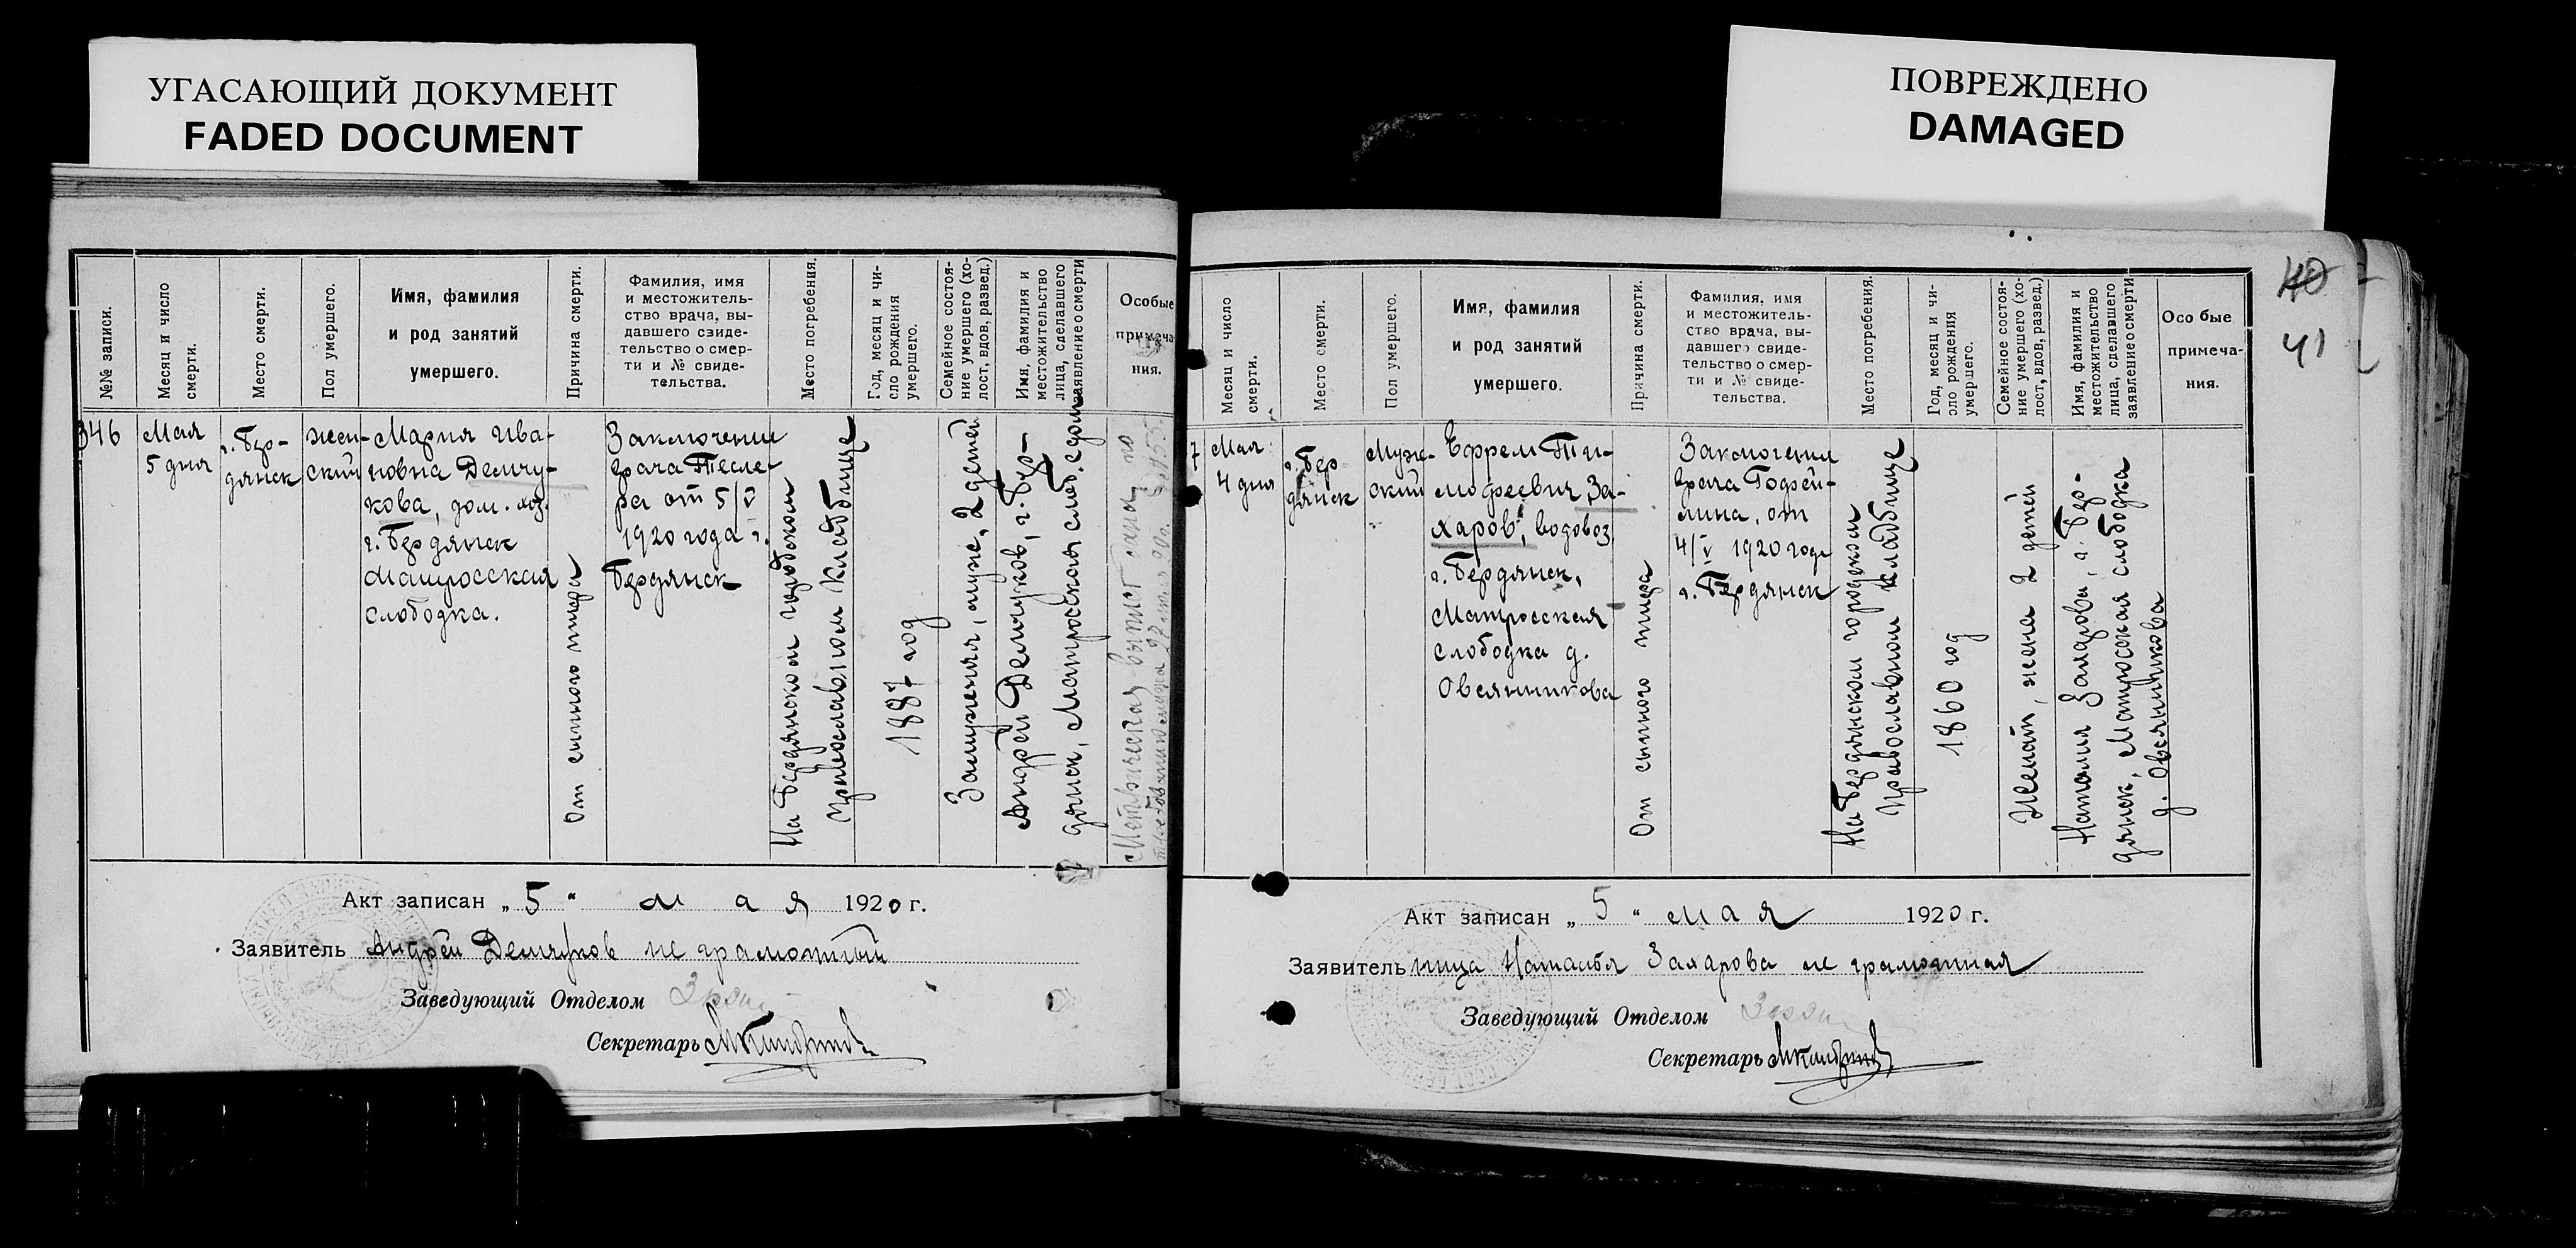 УГАСАЮЩИЙ ДОКУМЕНТ
FADED DOCUMENT
ПОВРЕЖДЕНО
DAMAGED
№№ записи.
Месяц и число
смерти.
Место смерти.
Пол умершего.
Имя, фамилия
и род занятий
умершего.
Причина смерти.
Фамилия, имя
и местожитель-
ство врача, вы-
давшего свиде-
тельство о смер-
ти и № свиде-
тельства.
Место погребения.
Год, месяц и чи-
сло рождения
умершего.
Семейное состоя-
ние умершего (хо-
лост, вдов, развед.)
Имя, фамилия и
местожительство
лица, сделавшего
заявление о смерти
Особые
примеча-
ния.
346
Мая
5 дня
г. Бер-
дянск
жен-
ский
Мария Ива-
новна Демчу-
кова, дом. хоз.
г. Бердянск
Матросская
слободка.
От сыпного тифа
Заключение
врача Тесле-
ра от 5/V
1920 года г.
Бердянск
На Бердянском городском
православном кладбище
1887 год
Замужняя, муж, 2 детей
Андрей Демчуков, г. Бер-
дянск, Матросская слоб. с дом
Метрическая выпись дана по
Акт записан „5“ мая 1920 г.
Заявитель Андрей Демчуков не грамотный
Заведующий Отделом
Секретарь
Месяц и число
смерти.
Место смерти.
Пол умершего.
Имя, фамилия
и род занятий
умершего.
Причина смерти.
Фамилия, имя
и местожитель-
ство врача, вы-
давшего свиде-
тельство о смер-
ти и № свиде-
тельства.
Место погребения.
Год, месяц и чи-
сло рождения
умершего.
Семейное состоя-
ние умершего (хо-
лост, вдов, развед.)
Имя, фамилия и
местожительство
лица, сделавшего
заявление о смерти
Особые
примеча-
ния.
40
41
7
Мая
4 дня
г. Бер
дянск
Муж-
ский
Ефрем Ти-
мофеевич За-
харов, водовоз
г. Бердянск,
Матросская
слободка д.
Овсянникова
От сыпного тифа
Заключение
врача Годзей-
лина, от
4/V 1920 года
г. Бердянск
На Бердянском городском
Православном кладбище
1860 год
Женат, жена 2 детей
Наталия Захарова, г. Бер-
дянск, Матросская слободка
д. Овсянникова
Акт записан „5“ мая 1920 г.
Заявительница Наталья Захарова не грамотная
Заведующий Отделом
Секретарь